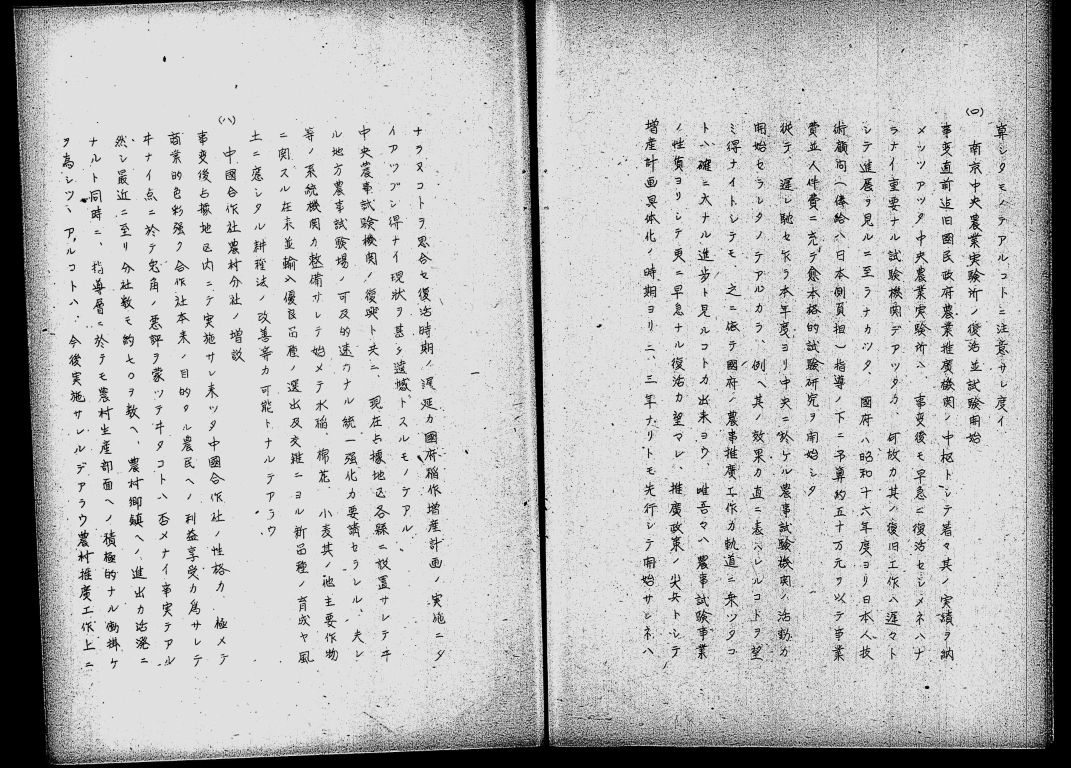 算シタモノテアルコトニ注意サレ度イ
(ロ) 南京中央農業実験所ノ復治並試験開始
事変直前迠旧國民政府農業推廣機関ノ中枢トシテ着々其ノ実績ヲ納
メツツアツタ中央農業実験所ハ、事変後モ早急ニ復活セシメネハナ
ラナイ重要ナル試験機関デアツタカ、何故カ其ノ復旧工作ハ遅々ト
シテ進展ヲ見ルニ至ラナカツタ、國府ハ昭和十六年度ヨリ日本人技
術顧問(俸給ハ日本側負担)指導ノ下ニ予算約五十万元ヲ以テ事業
費並人件費ニ充テ愈本格的試験研究ヲ開始シタ
従テ、遅レ馳セ乍ラ本年度ヨリ中央ニ於ケル農事試験機関ノ活動カ
開始セラレタノテアルカラ、例ヘ其ノ効果カ直ニ表ハレルコトヲ望
ミ得ナイトシテモ、之ニ依テ國府ノ農事推廣工作カ軌道ニ乗ツタコ
トハ確ニ大ナル進歩ト見ルコトカ出来ヨウ、唯吾々ハ農事試験事業
ノ性質ヨリシテ更ニ早急ナル復活カ望マレ、推廣政策ノ尖兵トシテ
増産計画具体化ノ時期ヨリ二、三年ナリトモ先行シテ開始サレネハ
ナラヌコトヲ思合セ復活時期ノ遅延カ國府稲作増産計画ノ実施ニタ
イアツプシ得ナイ現状ヲ甚タ遺憾トスルモノテアル、
中央農事試験機関ノ復興ト共ニ、現在占據地区各縣ニ設置サレテヰ
ル地方農事試験場ノ可及的速カナル統一強化カ要請セラレル、夫レ
等ノ系統機関カ整備サレテ始メテ水稲、棉花、小麦其ノ他主要作物
ニ関スル在来並輸入優良品種ノ選出及交雑ニヨル新品種ノ育成ヤ風
土ニ應シタル耕種法ノ改善等カ可能トナルテアラウ
(ハ) 中國合作社農村分社ノ増設
事変後占據地区内ニテ実施サレ来ツタ中國合作社ノ性格カ、極メテ
商業的色彩强ク合作社本来ノ目的タル農民ヘノ利益享受カ為サレテ
ヰナイ点ニ於テ兎角ノ悪評ヲ蒙ツテヰタコトハ否メナイ事実テアル
然シ最近ニ至リ分社数モ約七〇ヲ数ヘ、農村郷鎮ヘノ進出カ活溌ニ
ナルト同時ニ、指導層ニ於テモ農村生産部面ヘノ積極的ナル働掛ケ
ヲ為シツヽアルコトハ、今後実施サレルデアラウ農村推廣工作上ニ